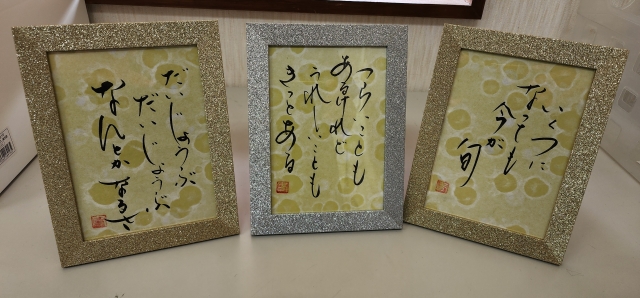 だいじょうぶ
だいじょうぶ
なんとかなるさ
つらいことも
あるけれど
うれしいことも
きっとある
いくつに
なっても
今が
旬